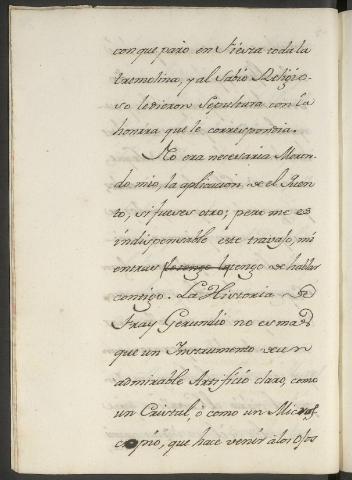 con que paró en fiesta toda la
tremolina, y al Sabio Religio-
so le dieron Sepultura con la
honrra que le correspondia.
No era necesaria Moron-
do mio, la aplicacion de el Quen-
to, si fueses otro; pero me es
indispensable este travajo, mi
entras tengo de hablar
contigo. La Historia de
Fray Gerundio no es mas
que un Instrumento de un
admirable Artificio claro, como
un Cristal, ó como un Micros-
copio, que hace venir á los ojos